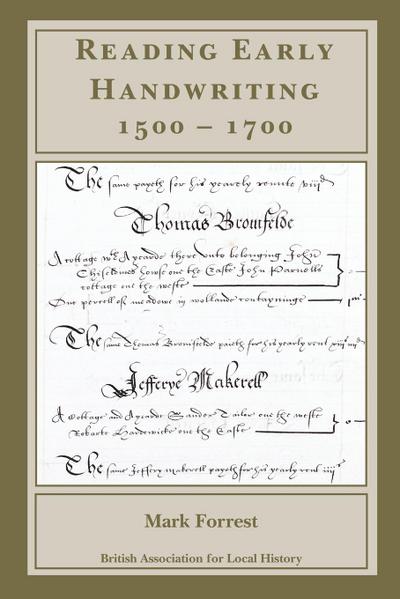 READING EARLY
HANDWRITING
1500 – 1700
The same payeth for his yearely rente viijd
Thomas Bromfelde
A cottage wth A yearde there unto belonging John
Chiseldines howse one the Easte John Parnolls
cottage one the weste
One percell of meadowe in wollande contayninge
The same Thomas Bromfelde paieth for his yearly rent
Jefferye Makerell
A Cottage and Ayearde Saunder Tailor one the weste
Robarte Hardewicke one the Easte
The same Jeffery makerell payeth for his yearly rent iiijs
Mark Forrest
British Association for Local History